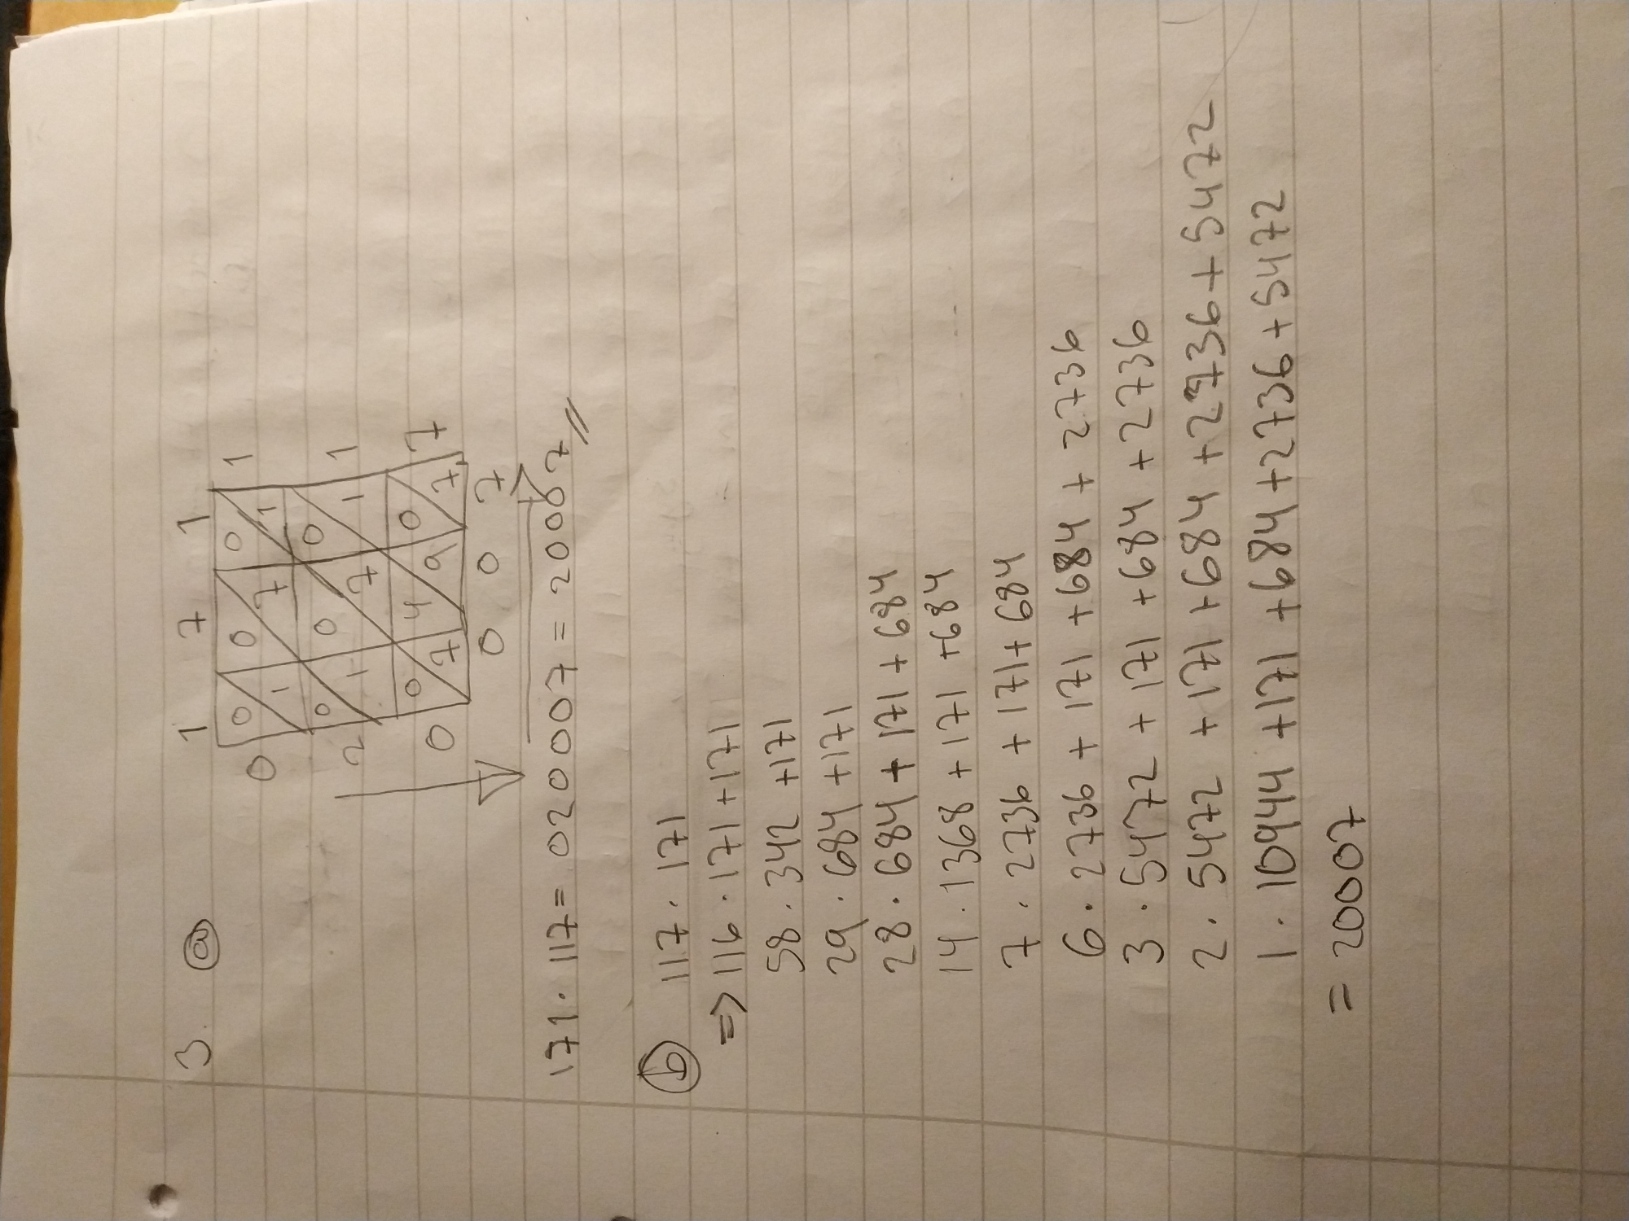 3. (a)
1 7 1
0 0 0 0 1
1 7 1
0 0 0
2 1 7 1 1
0 4 0
0 7 9 7 7
0 0 7
171 · 117 = 020007 = 20007
(b) 117 · 171
=> 116 · 171 + 171
58 · 342 + 171
29 · 684 + 171
28 · 684 + 171 + 684
14 · 1368 + 171 + 684
7 · 2736 + 171 + 684
6 · 2736 + 171 + 684 + 2736
3 · 5472 + 171 + 684 + 2736
2 · 5472 + 171 + 684 + 2736 + 5472
1 · 10944 + 171 + 684 + 2736 + 5472
= 20007